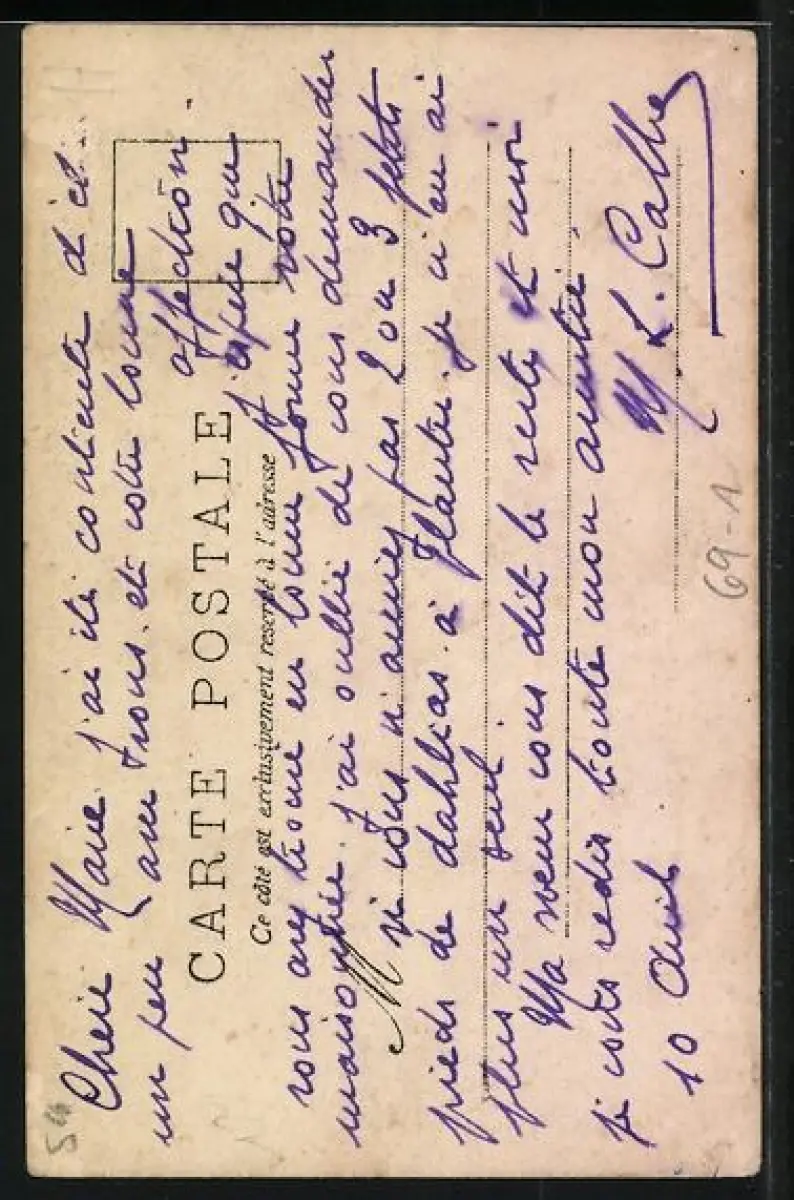 Chère Marie j'ai été contente d'êt
un peu avec vous. et votre bonne
affection.
CARTE POSTALE
j'espère que
Ce côté est exclusivement reservé à l'adresse
vous avez trouvé en bonne forme votre
maisonnée. j'ai oublié de vous demander
M
si vous n'auriez pas 2 ou 3 petits
pieds de dahlias à planter. je n'en ai
plus un seul.
Ma sœur vous dit le reste et moi
je vous redis toute mon amitié.
10 Avril
M. L.
69-1